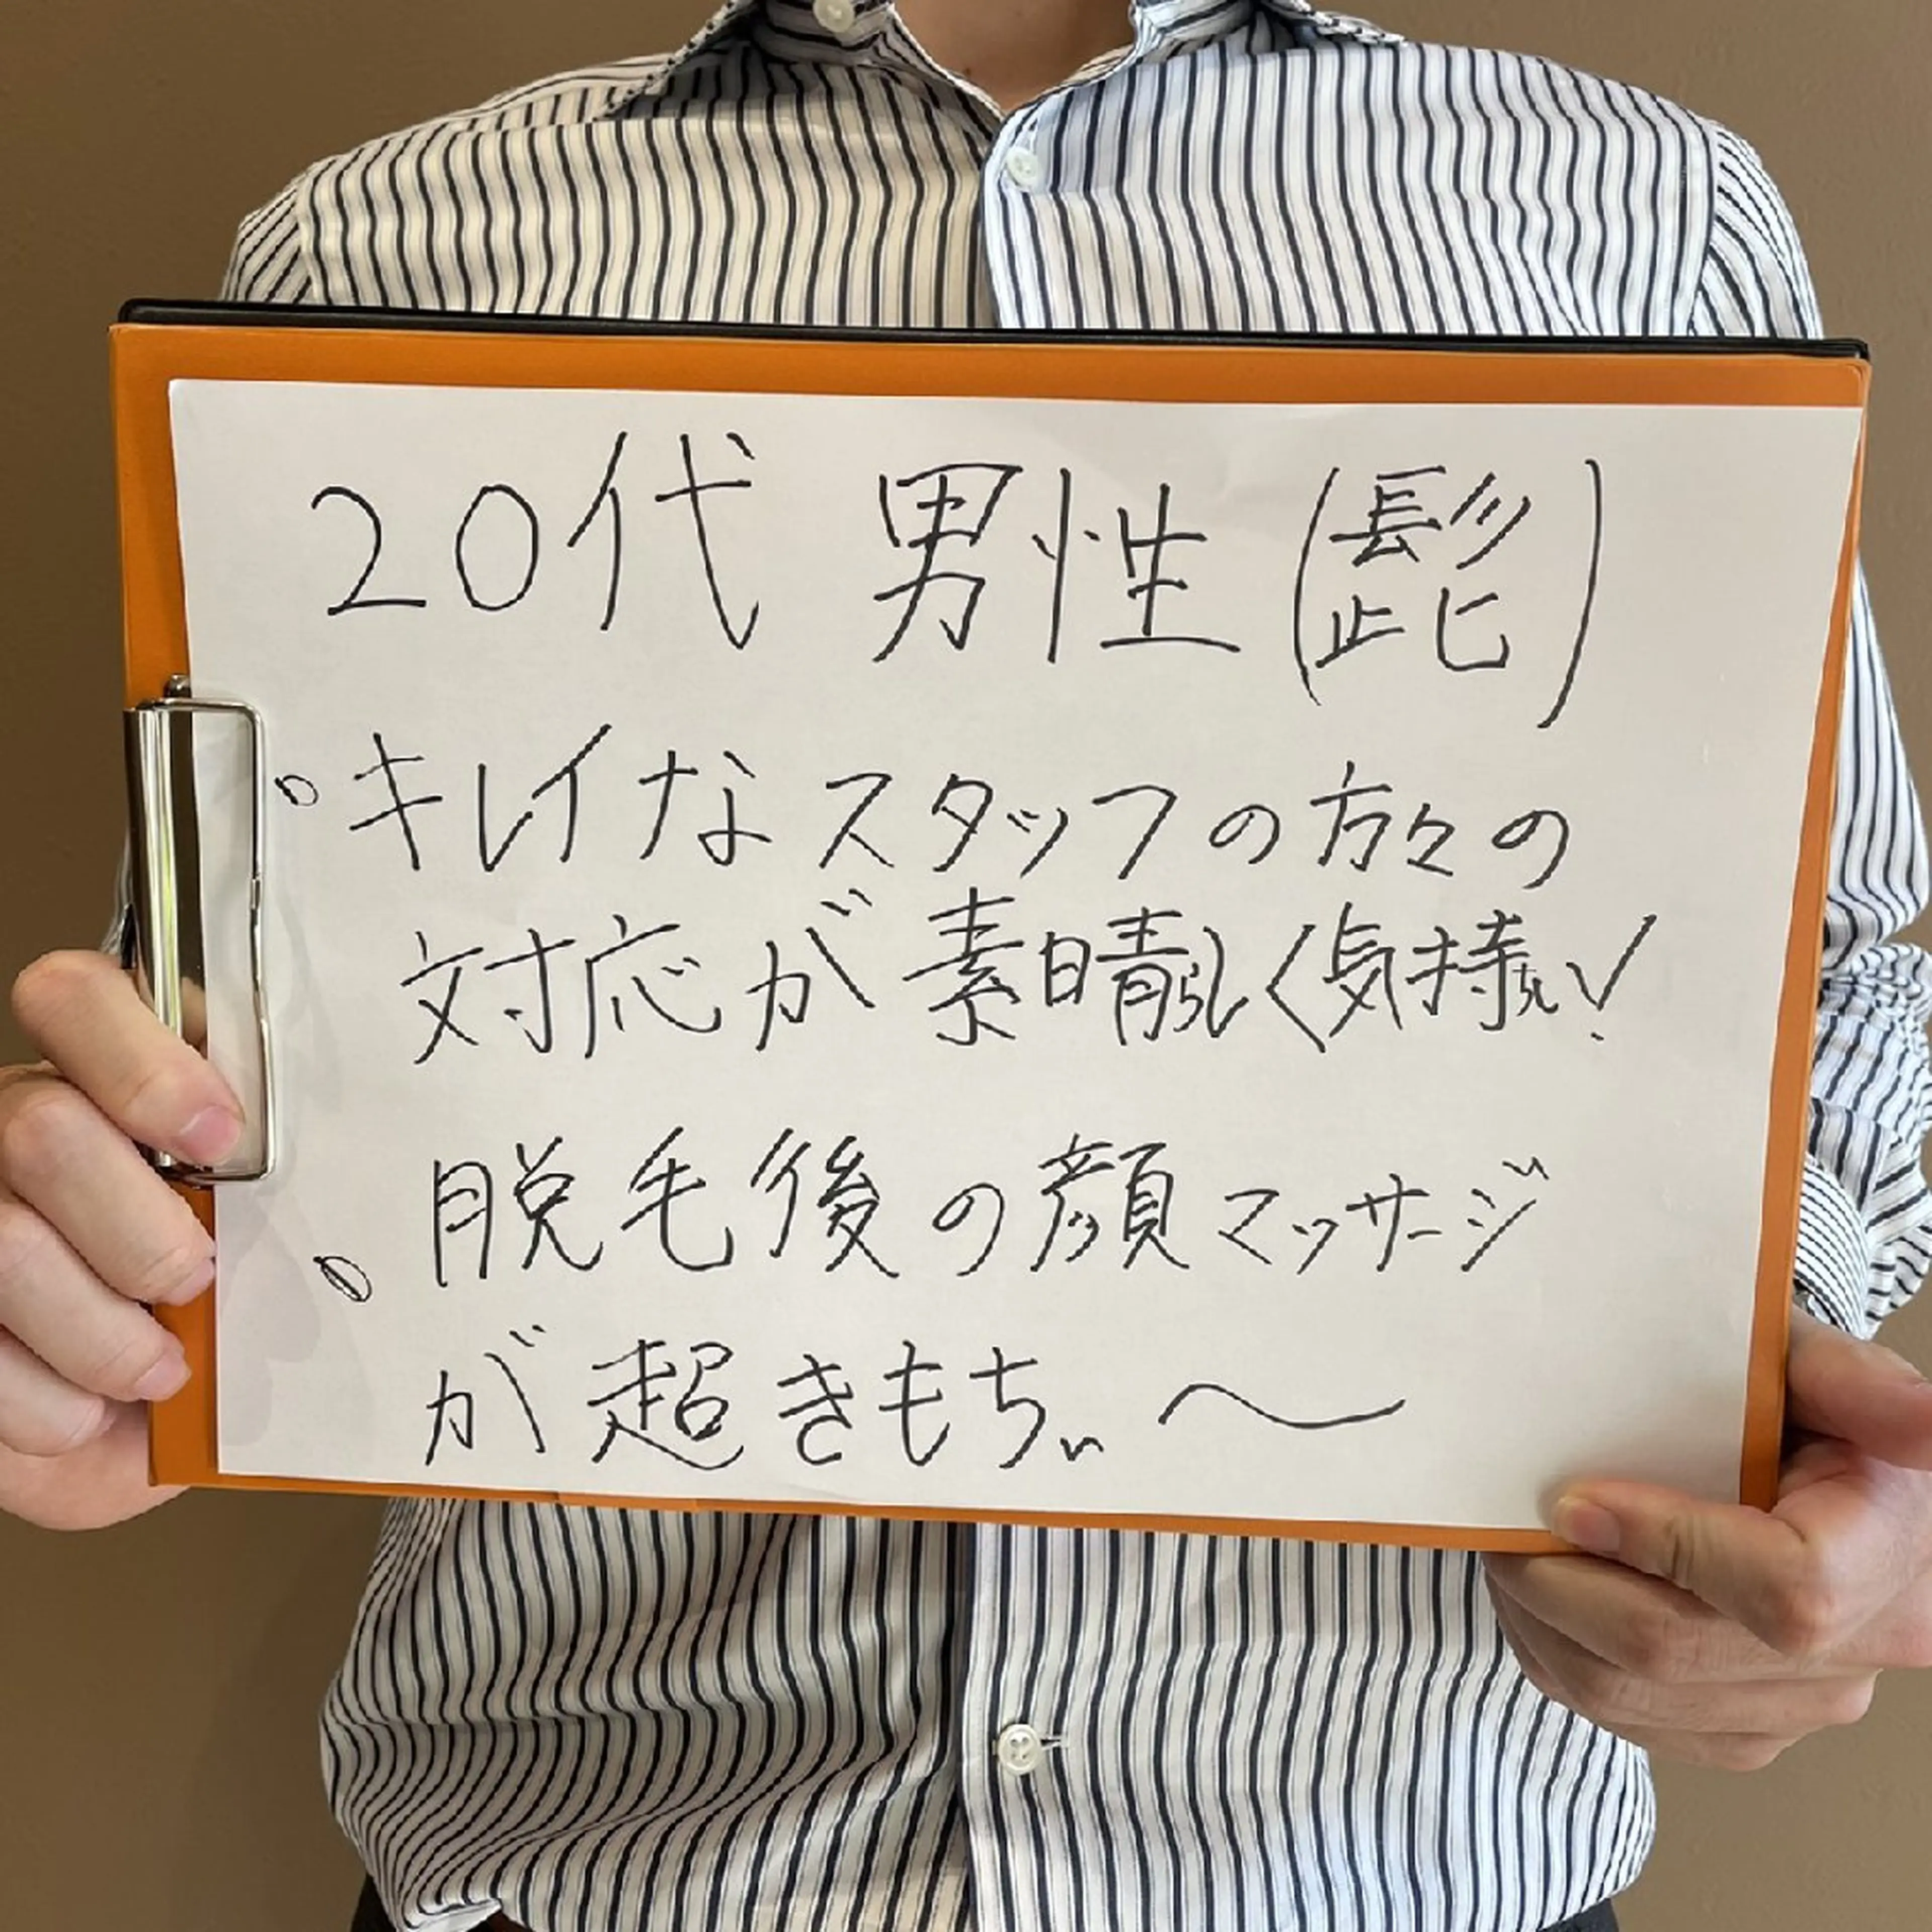 20代 男性(髭)
・キレイなスタッフの方々の
対応が素晴らしく気持ちい!
・脱毛後の顔マッサージ
が超きもちぃ〜